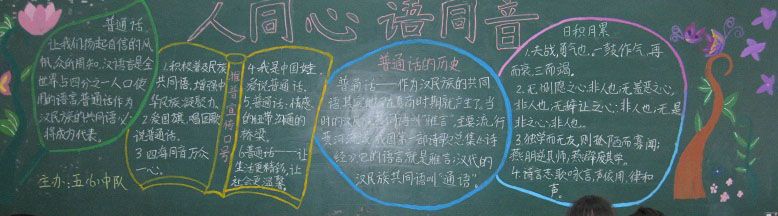 人同心 语同音
普通话
让我们扬起自信的风
帆,众所周知,汉语言是全
世界占四分之一人口使
用的语言,普通话作为
汉民族的共同语,必
将成为代表。
主办:五(6)中队
推普宣传口号
1.积极普及民族
共同语,增强中
华民族凝聚力。
2.爱国旗,唱国歌,
说普通话。
3.四海同音,万众
一心。
4.我是中国娃,
爱说普通话。
5.普通话:情感
的纽带,沟通的
桥梁。
6.普通话——让
生活更精彩,让
社会更温馨。
普通话的历史
普通话——作为汉民族的共同
语,其实
当时的汉民族共同语叫“雅言”,主要流行
黄河流域,我国第一部诗歌总集《诗
经》 的语言就是雅言;汉代的
汉民族共同语叫“通语”。
日积月累
1.夫战,勇气也,一鼓作气,再
而衰,三而竭。
2.无恻隐之心,非人也;无羞恶之心,
非人也;无辞让之心,非人也;无是
非之心,非人也。
3.独学而无友,则孤陋而寡闻;
燕朋逆其师,燕辟废其学。
4.诗言志,歌咏言,声依用,律和
声。